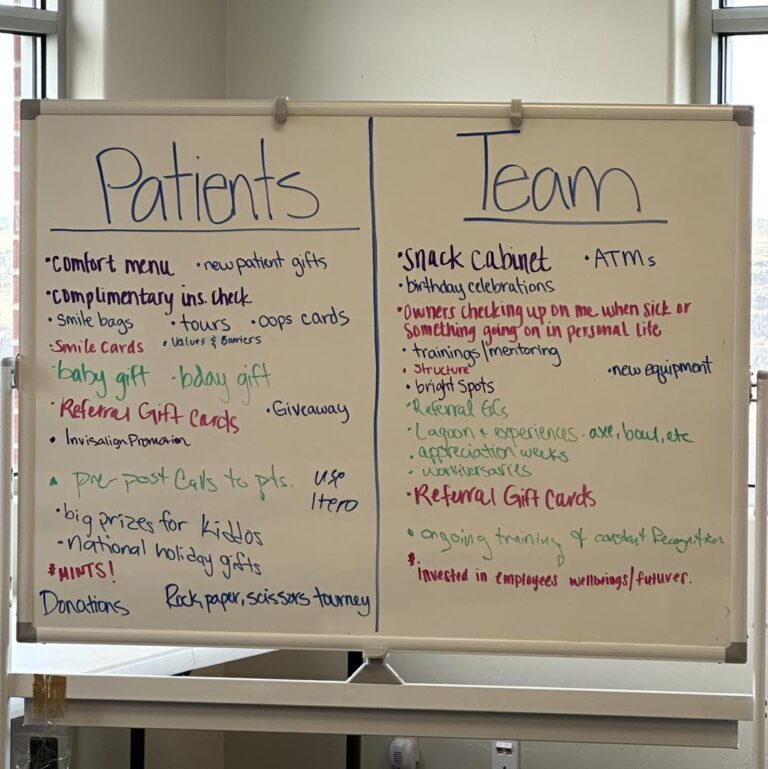 Patients
•comfort menu •new patient gifts
•complimentary ins. check
•smile bags •tours •oops cards
•Smile cards •Values & Barriers
•baby gift •bday gift
•Referral Gift Cards •Giveaway
• Invisalign Promotion
• pre-post calls to pts. use
Itero
•big prizes for kiddos
•national holiday gifts
*MINTS!
Donations Rock, paper, scissors tourney
Team
•snack cabinet •ATMs
•birthday celebrations
•Owners checking up on me when sick or
something going on in personal life
•trainings/mentoring
•Structure •new equipment
•bright spots
•Referral GCs
•Lagoon + experiences - axe, bowl, etc
•appreciation weeks
•workiversaries
•Referral Gift Cards
• ongoing training & constant Recognition
*invested in employees wellbeings/futures.